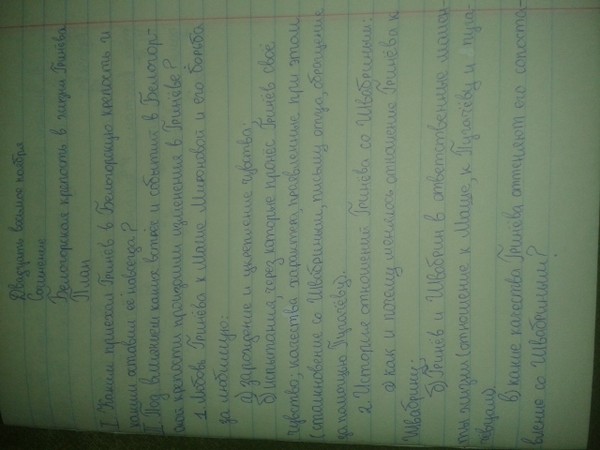 Двадцать восьмое ноября
Сочинение
Белогорская крепость в жизни Гринёва
План
I. Каким приехал Гринёв в Белогорскую крепость и
каким оставил её навсегда?
II. Под влиянием каких встреч и событий в Белогор-
ской крепости произошли изменения в Гринёве?
1. Любовь Гринёва к Маше Мироновой и его борьба
за любимую:
а) Зарождение и укрепление чувства;
б) Испытания, через которые пронёс Гринёв своё
чувство, качества характера, проявленные при этом
(столкновение со Швабриным, письмо отцу, обращение
за помощью Пугачёву).
2. История отношений Гринёва со Швабриным:
а) как и почему менялось отношение Гринёва к
Швабрину;
б) Гринёв и Швабрин в ответственные момен-
ты жизни (отношение к Маше, к Пугачёву и пуга-
чёвцам).
в) какие качества Гринёва оттеняют его сопоста-
вление со Швабриным?